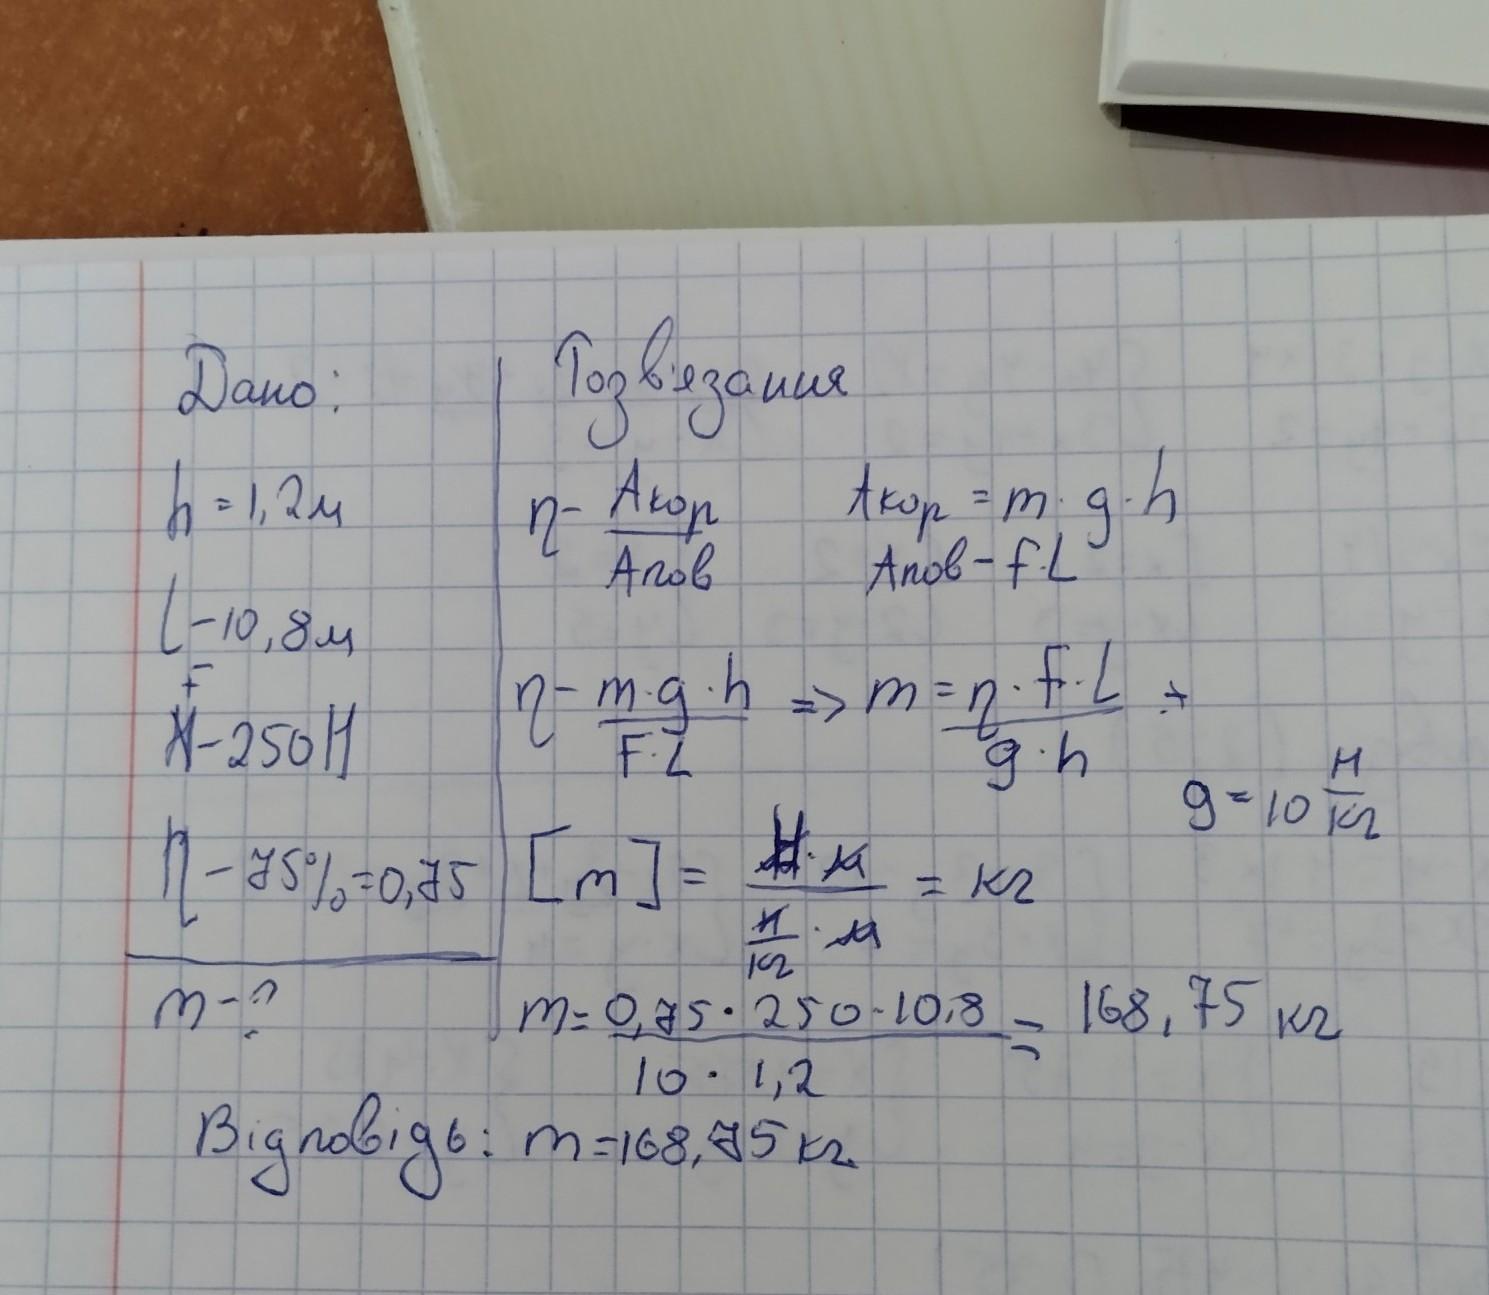 Дано:
h = 1,2м
L - 10,8м
F - 250 Н
η - 75% = 0,75
m - ?
Розв'язання
η - Aкор / Апов
Aкор = m · g · h
Апов - F·L
η - m·g·h / F·L => m = η·F·L / g·h
g = 10 Н/кг
[m] = Н·м / Н/кг · м = кг
m = 0,75 · 250 · 10,8 / 10 · 1,2 = 168,75 кг
Відповідь: m = 168,75 кг